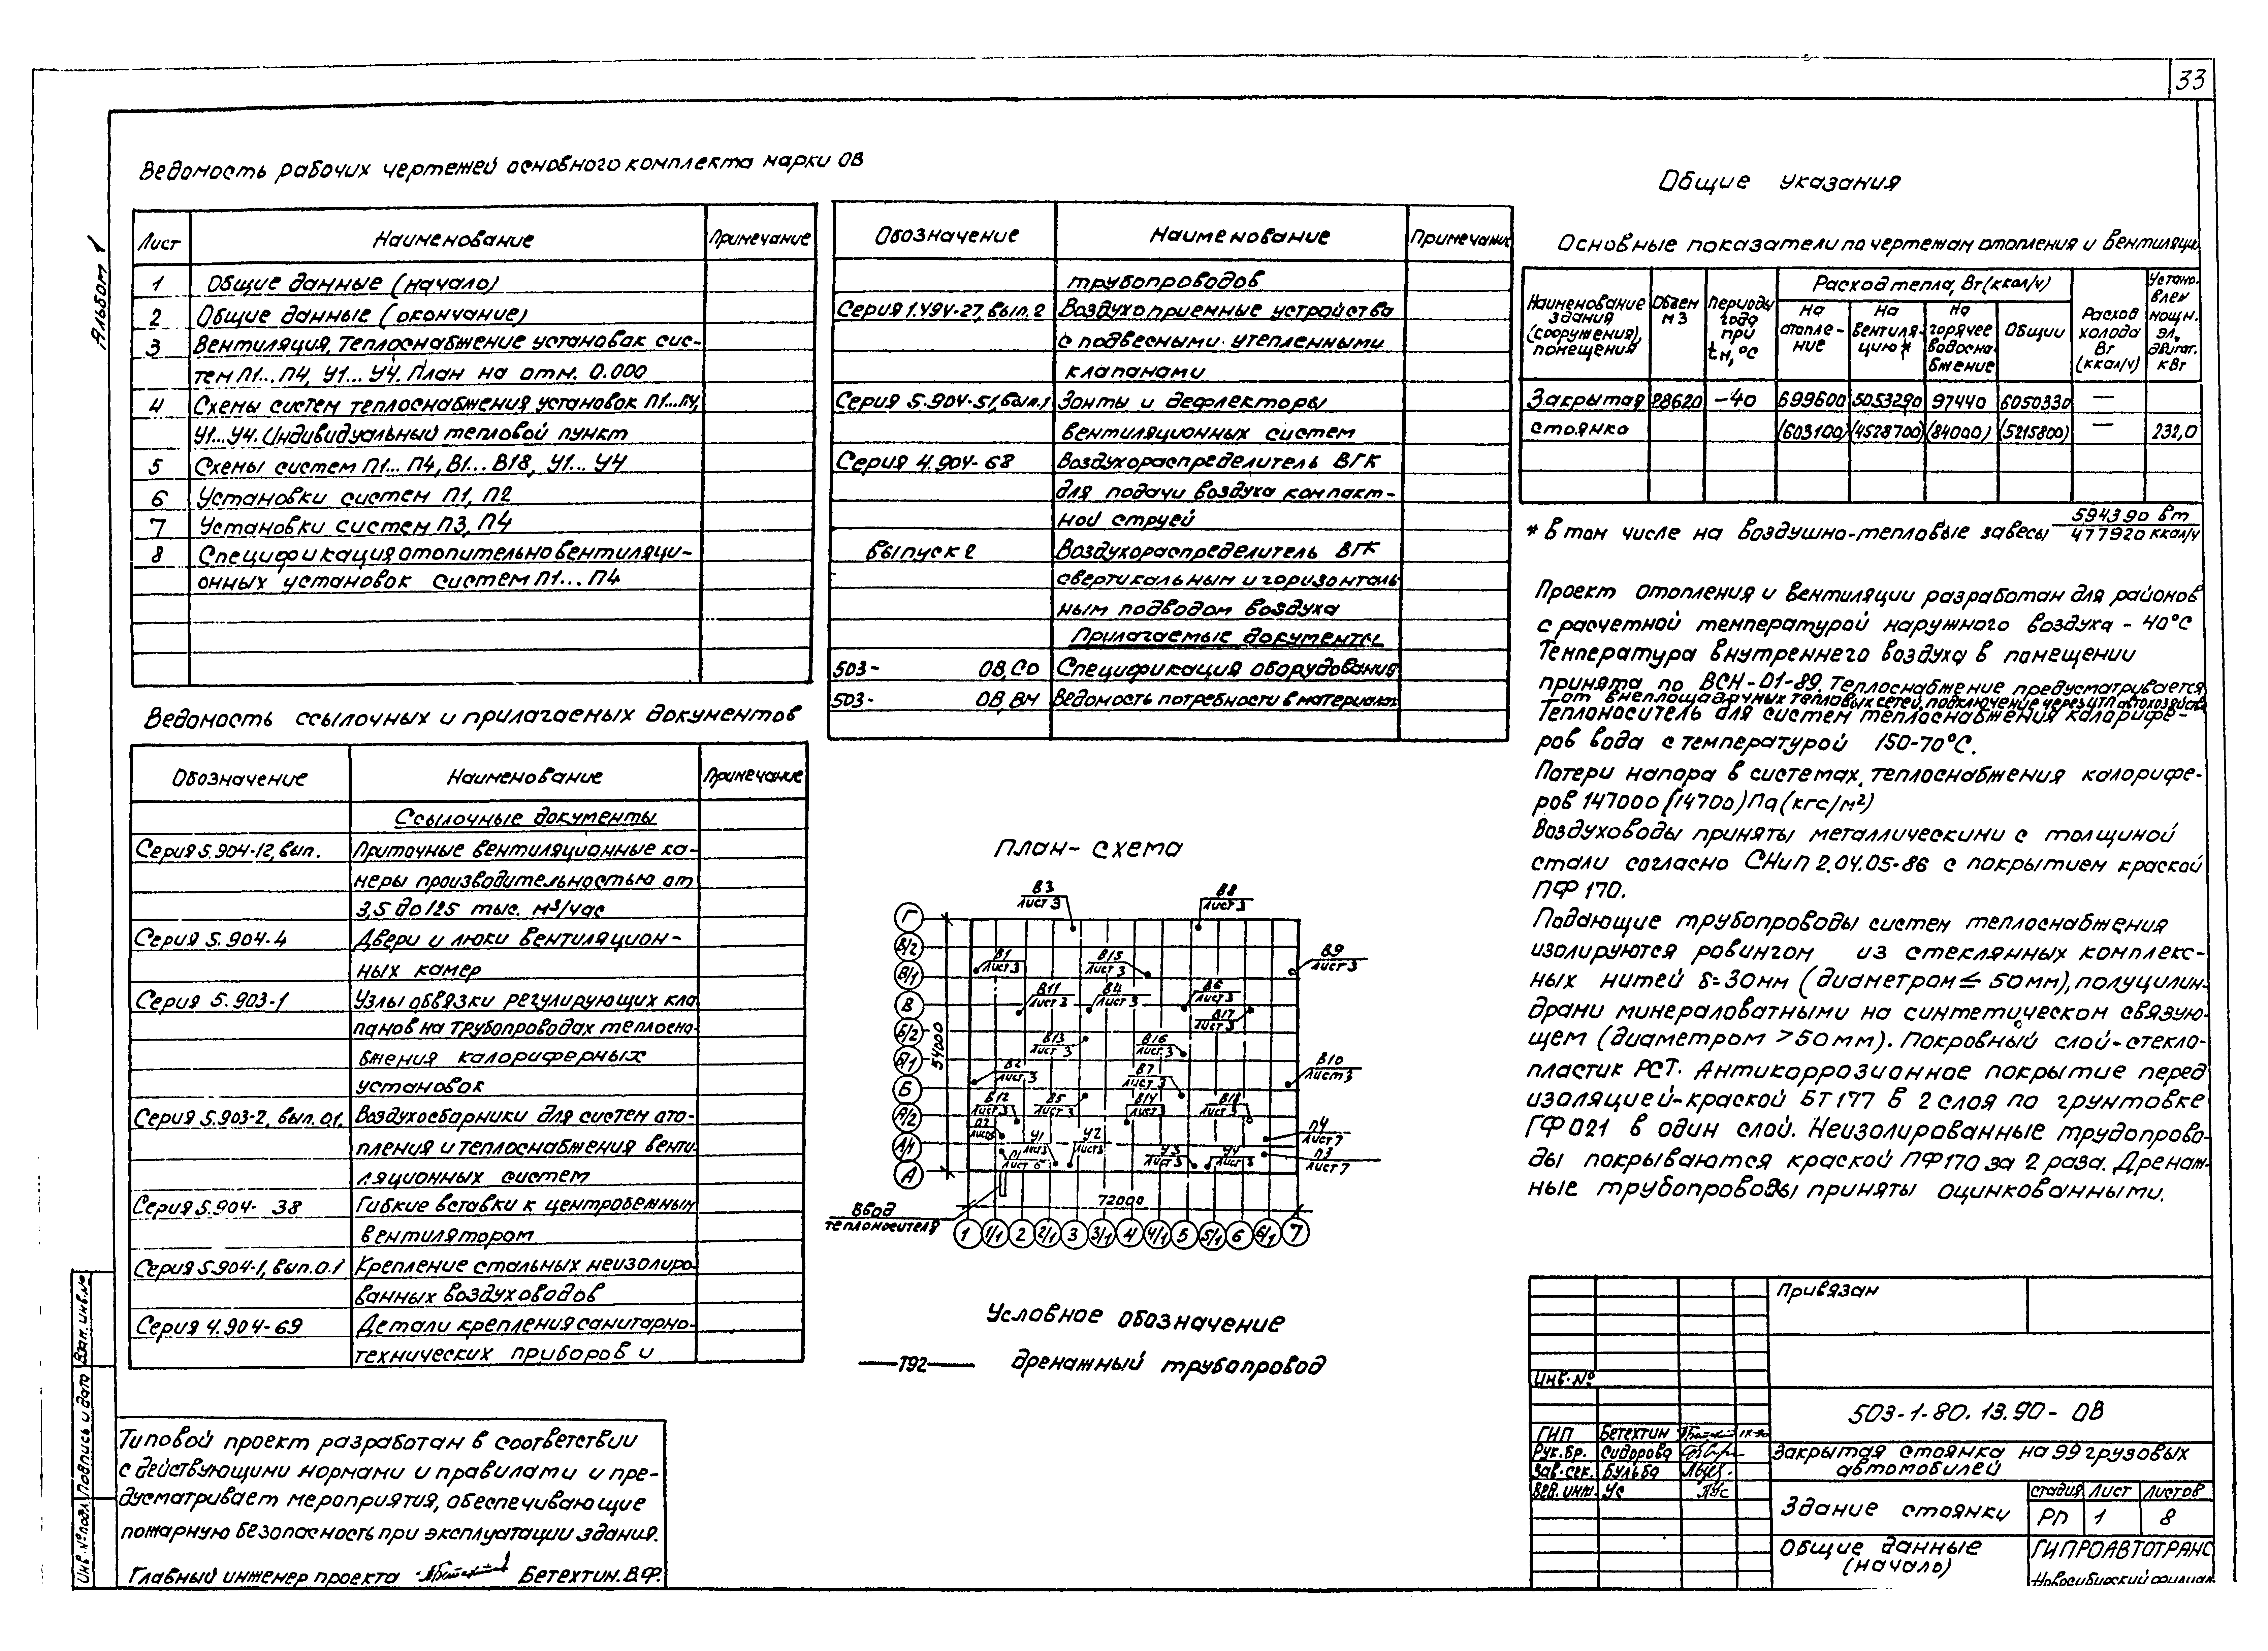 33
Альбом 1
Ведомость рабочих чертежей основного комплекта марки ОВ
Лист Наименование Примечание
1 Общие данные (начало)
2 Общие данные (окончание)
3 Вентиляция, теплоснабжение установок сис-
тем П1... П4, У1... У4. План на отм. 0.000
4 Схемы систем теплоснабжения установок П1...П4,
У1...У4. Индивидуальный тепловой пункт
5 Схемы систем П1... П4, В1... В18, У1... У4
6 Установки систем П1, П2
7 Установки систем П3, П4
8 Спецификация отопительно вентиляци-
онных установок систем П1... П4
Ведомость ссылочных и прилагаемых документов
Обозначение Наименование Примечание
Ссылочные документы
Серия 5.904-12, вып. Приточные вентиляционные ка-
меры производительностью от
3,5 до 125 тыс. м³/час
Серия 5.904-4 Двери и люки вентиляцион-
ных камер
Серия 5.903-1 Узлы обвязки регулирующих кла
панов на трубопроводах теплосна-
бжения калориферных
установок
Серия 5.903-2, вып. 0.1, Воздухосборники для систем ото-
пления и теплоснабжения венти-
ляционных систем
Серия 5.904- 38 Гибкие вставки к центробежным
вентиляторам
Серия 5.904-1, вып. 0.1 Крепление стальных неизолиро-
ванных воздуховодов
Серия 4.904-69 Детали крепления санитарно-
технических приборов и
Обозначение Наименование Примечание
трубопроводов
Серия 1.494-27, вып. 2 Воздухоприемные устройства
с подвесными утепленными
клапанами
Серия 5.904-51, вып.1 Зонты и дефлекторы
вентиляционных систем
Серия 4.904-68 Воздухораспределитель ВГК
для подачи воздуха компакт-
ной струей
Выпуск 2 Воздухораспределитель ВГК
с вертикальным и горизонталь
ным подводом воздуха
Прилагаемые документы
503- ОВ, СО Спецификация оборудования
503- ОВ, ВМ Ведомость потребности в материалах
План-схема
В3 Лист 3
В8 Лист 3
В1 Лист 3
В15 Лист 3
В9 Лист 3
В11 Лист 3
В4 Лист 3
В6 Лист 3
В17 Лист 3
В13 Лист 3
В16 Лист 3
В2 Лист 3
В7 Лист 3
В10 Лист 3
В12 Лист 3
В5 Лист 3
В14 Лист 3
В18 Лист 3
П2 Лист 6
У1 Лист 3
У2 Лист 3
П4 Лист 7
П1 Лист 6
У3 Лист 3
У4 Лист 3
П3 Лист 7
Г
В/2
В/1
В
Б/2
Б/1
Б
А/2
А/1
А
54000
72000
Ввод
теплоносителя
1 1/1 2 2/1 3 3/1 4 4/1 5 5/1 6 6/1 7
Условное обозначение
Т92 дренажный трубопровод
Общие указания
Основные показатели по чертежам отопления и вентиляци
Наименование здания (сооружения), помещения
Объем м3
Периоды года при tн, °С
Расход тепла, Вт (ккал/ч)
На отопле-ние
На вентиля-цию *
На горячее водосна-бжение
Общий
Расход холода Вт (ккал/ч)
Устано-влен мощн. эл. двигат. кВт
Закрытая 28620 -40 699600 5053290 97440 6050330 —
стоянка (603100) (4528700) (84000) (5215800) — 232,0
* В том числе на воздушно-тепловые завесы 594390 Вт
477920 ккал/ч
Проект отопления и вентиляции разработан для районов
с расчетной температурой наружного воздуха - 40°С
Температура внутреннего воздуха в помещении
принята по ВСН-01-89. Теплоснабжение предусматривается
от внеплощадочных тепловых сетей, подключение через ЦТП автохозяйства
Теплоноситель для систем теплоснабжения калорифе-
ров вода с температурой 150-70°С.
Потери напора в системах теплоснабжения калорифе-
ров 147000 (14700) Па (кгс/м²)
Воздуховоды приняты металлическими с толщиной
стали согласно СНиП 2.04.05-86 с покрытием краской
ПФ 170.
Подающие трубопроводы систем теплоснабжения
изолируются ровингом из стеклянных комплекс-
ных нитей δ=30мм (диаметром ≤ 50мм), полуцилин-
драми минераловатными на синтетическом связую-
щем (диаметром >50мм). Покровный слой-стекло-
пластик РСТ. Антикоррозионное покрытие перед
изоляцией-краской БТ177 в 2 слоя по грунтовке
ГФ 021 в один слой. Неизолированные трубопрово-
ды покрываются краской ПФ170 за 2 раза. Дренаж-
ные трубопроводы приняты оцинкованными.
Типовой проект разработан в соответствии
с действующими нормами и правилами и пре-
дусматривает мероприятия, обеспечивающие
пожарную безопасность при эксплуатации здания.
Главный инженер проекта Бетехтин. В.Ф.
Инв. № подл. Подпись и дата Взам. инв. №
Привязан
Инв. №
503-1-80. 13.90- ОВ
ГИП Бетехтин
Рук. бр. Сидорова
Зав. сек. Бульба
Вед. инж. Ус
Закрытая стоянка на 99 грузовых
автомобилей
Здание стоянки
Стадия Лист Листов
РП 1 8
Общие данные
(начало)
ГИПРОАВТОТРАНС
Новосибирский филиал